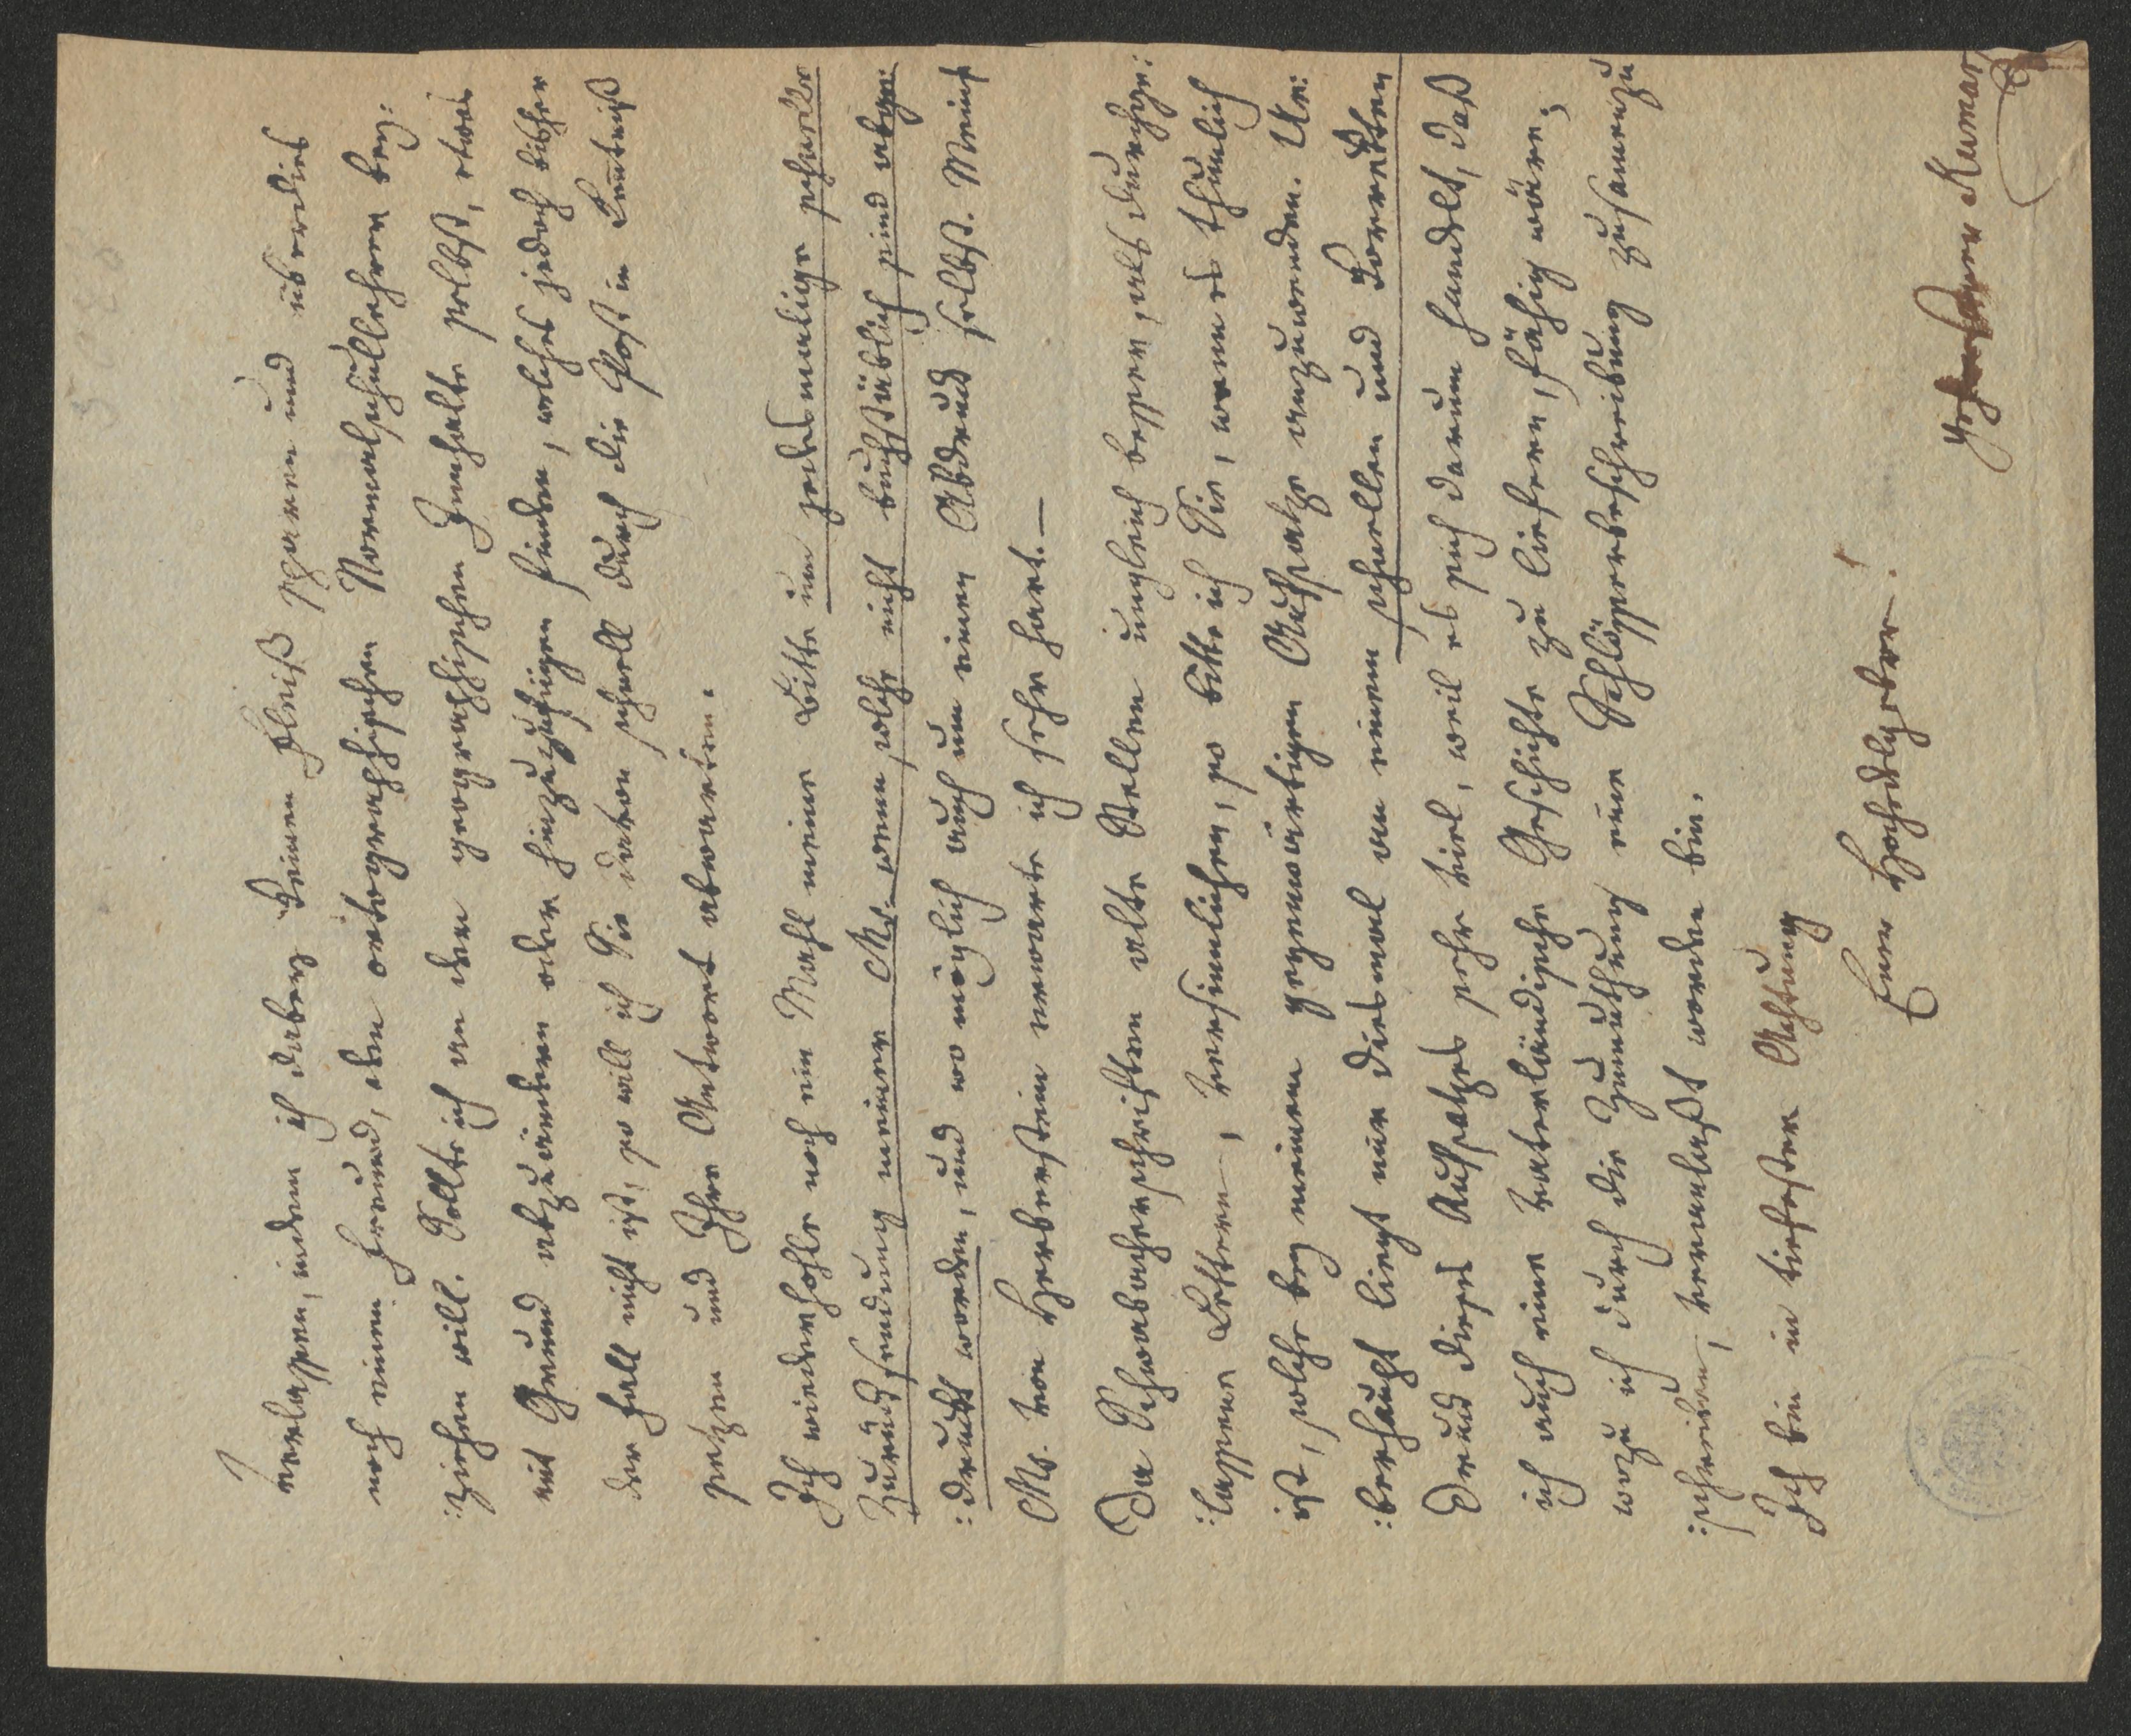 verlassen, indem ich dabey keinen Fleiß sparen und überdies
noch einen Freund, den ortographischen Normalschullehrer bey:
:ziehen will. Sollte ich an dem geographischen Innhalte selbst, etwas
mit Grund abzuändern oder hinzuzufügen finden, welches jedoch bisher
der Fall nicht ist, so will ich Sie davon schnell durch die Post in Kentniß
setzen und Ihre Antwort abwarten.
Ich wiederhohle noch ein Mahl meine Bitte um jedesmalige schnelle
Zurücksendung meiner Ms. wenn solche nicht buchstäblich sind abge:
:druckt worden, und wo möglich auch um einen Abdruck selbst. Meine
Ms. von Herberstein erwarte ich sehr hart. —
Da Schwabacherschriften alte Stellen ungleich besser, als durchge:
:lassene Lettern, versinnlichen, so bitte ich Sie, wenn es thunlich
ist, solche bey meinem gegenwärtigen Aufsatze anzuwenden. Ue:
:berhaupt liegt mir diesmal an einem schnellen und korrekten
Druck dieses Aufsatzes sehr viel, weil es sich darum handelt, daß
ich auch eine vaterländische Geschichte zu liefern, fähig wäre,
wozu ich durch die Zumuthung eine Schlösserbeschreibung zusamenzu
:schreiben, veranlaßt worden bin.
Ich bin in tiefester Achtung
Euer Hochedelgeber.
gehorsamer Kumar